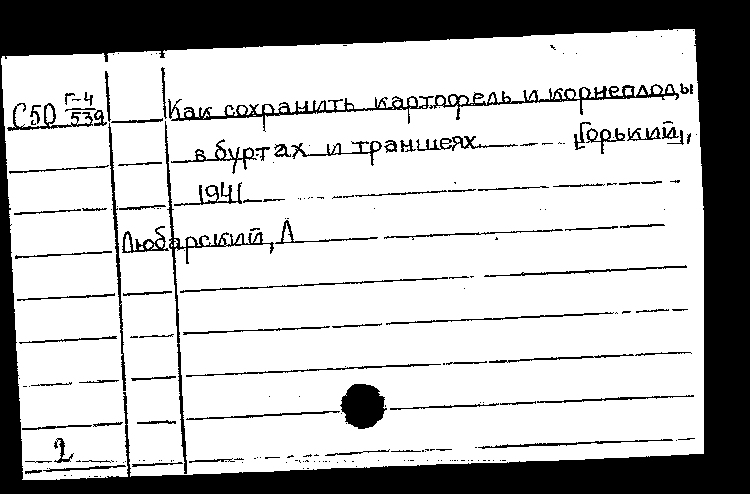 С50 Г-4/539 Как сохранить картофель и корнеплоды
в буртах и траншеях [Горький],
1941
Любарский, Л
2